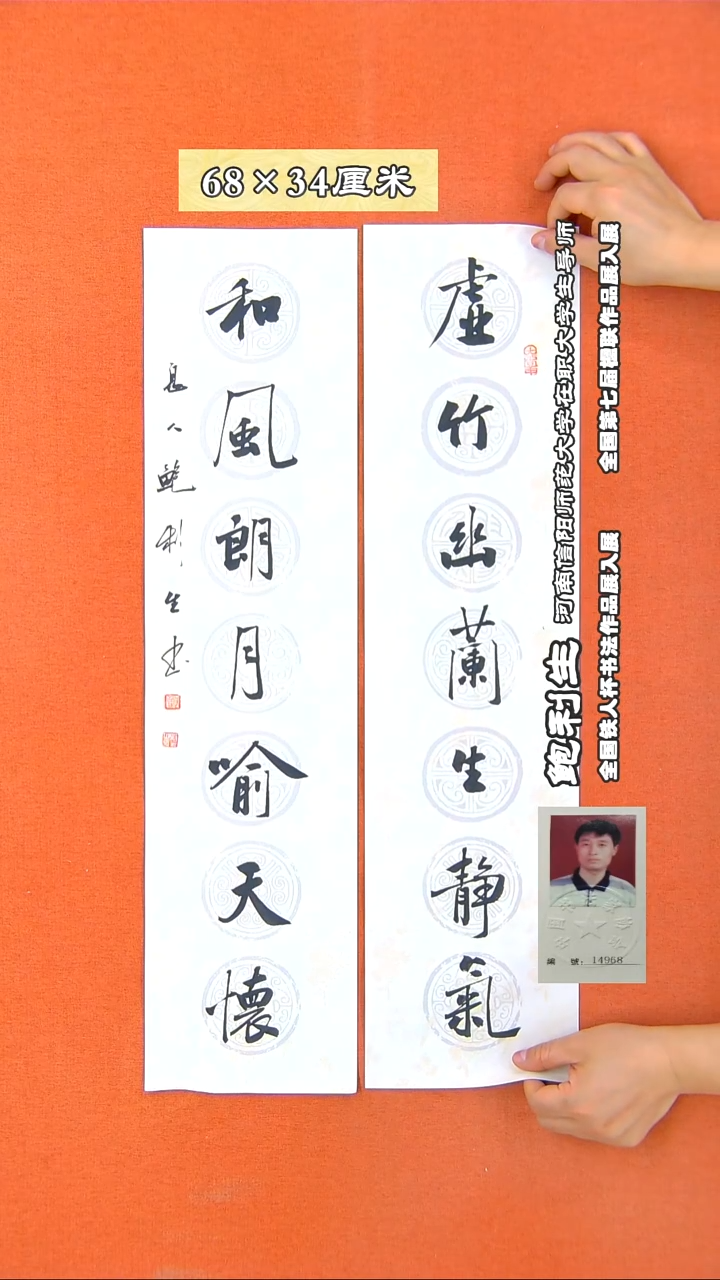 68×34厘米
虚竹幽蘭生静氣
和風朗月喻天懷
息人鲍利生书
鲍利生
河南信阳师范大学在职大学生导师
全国第七届楹联作品展入展
全国铁人杯书法作品展入展
编 號：14968